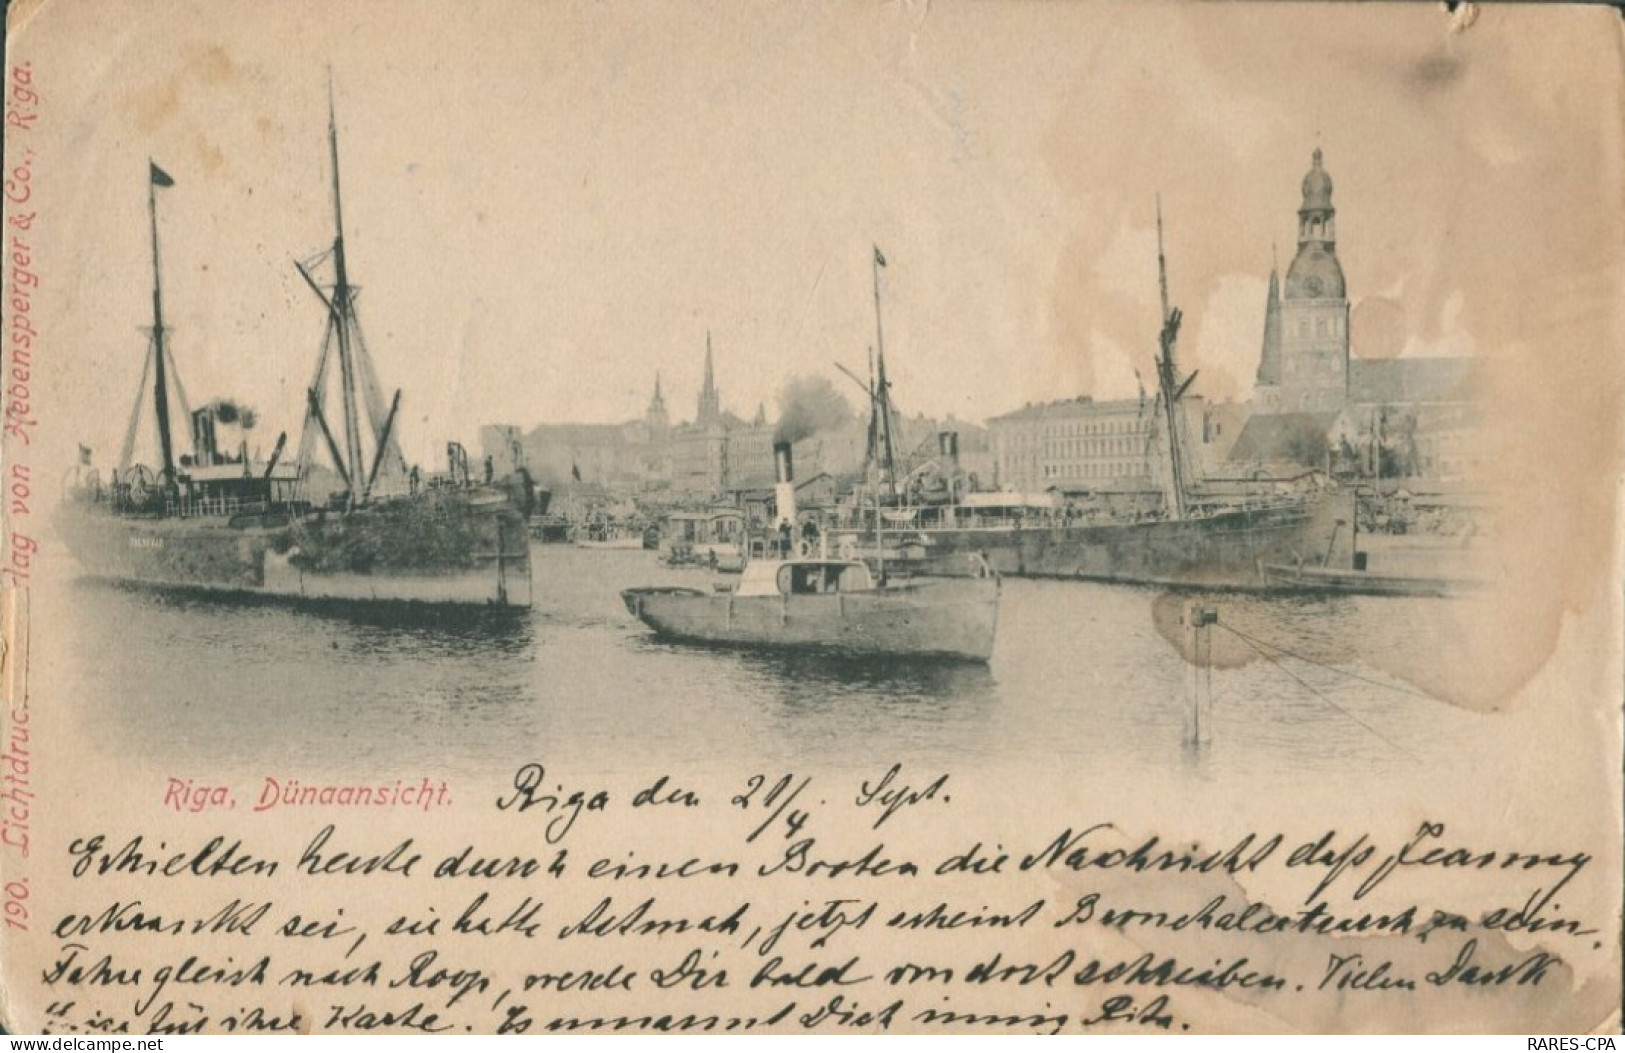 190. Lichtdruc lag von Hebensperger & Co., Riga.
Riga, Dünaansicht.
Riga den 21/4. Sept.
Erhielten heute durch einen Booten die Nachricht daß Jeannny
erkrankt sei, sie hatte Astmah, jetzt scheint Bronchalcatarrh zu sein.
Fahre gleich nach Roop, werde Dir bald von dort schreiben. Vielen Dank
für ihre Karte. Es umarmt Dich innig Rita.
delcampe.net
RARES-CPA